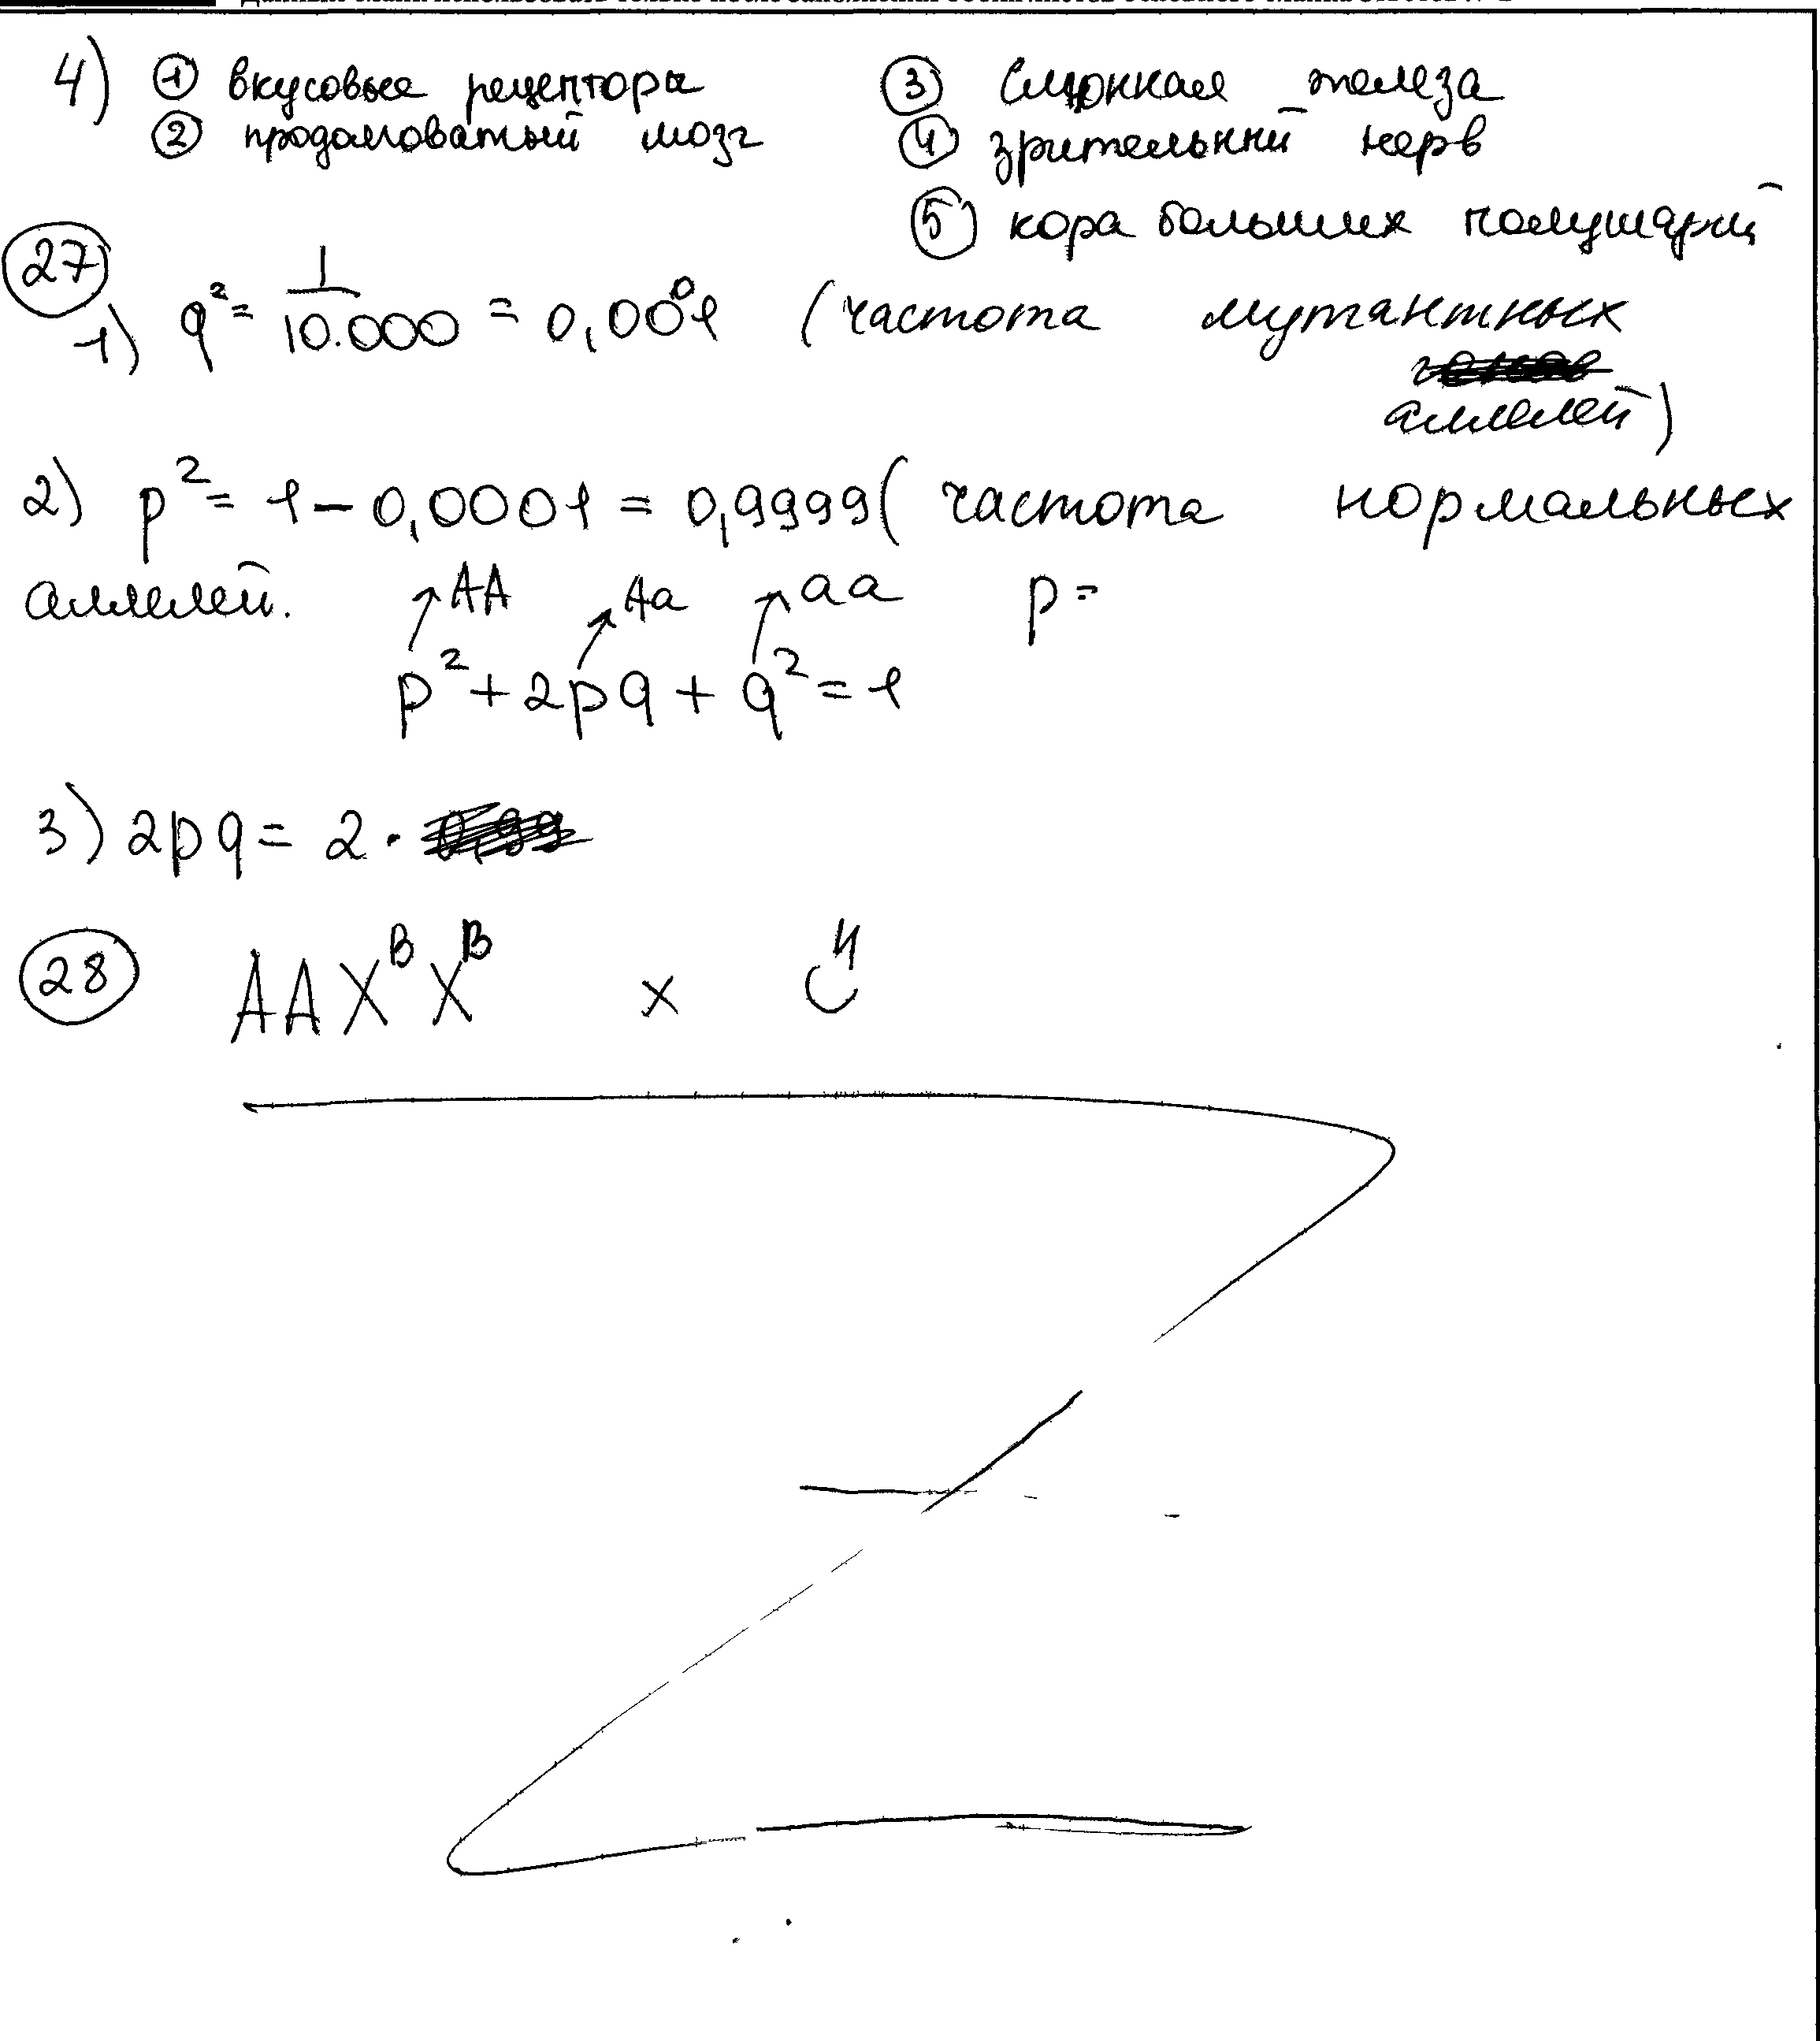 4) ① вкусовые рецепторы ③ Слюнная железа
② продолговатый мозг ④ зрительный нерв
⑤ кора больших полушарий
27
1) q² = 1/10.000 = 0,0001 (частота мутантных
аллелей)
2) p² = 1 – 0,0001 = 0,9999 ( частота нормальных
аллелей. ↗AA ↗Aa ↗aa p =
p² + 2pq + q² = 1
3) 2pq = 2 ·
28 AAXᴮXᴮ x